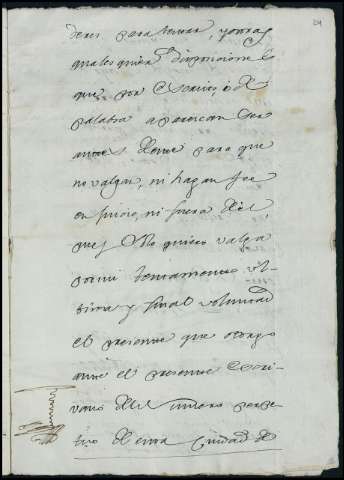 29
deres para testar, y otras
qualesquier disposiciones
que por escrito, o de
palabra aparescan
antes de esta para que
no valgan, ni hagan fee
en juicio, ni fuera del,
pues solo quiero valga
por mi testamento ul
tima y final voluntad
el presente que otorgo
ante el presente escri-
vano del numero perpe
tuo de esta Ciudad de